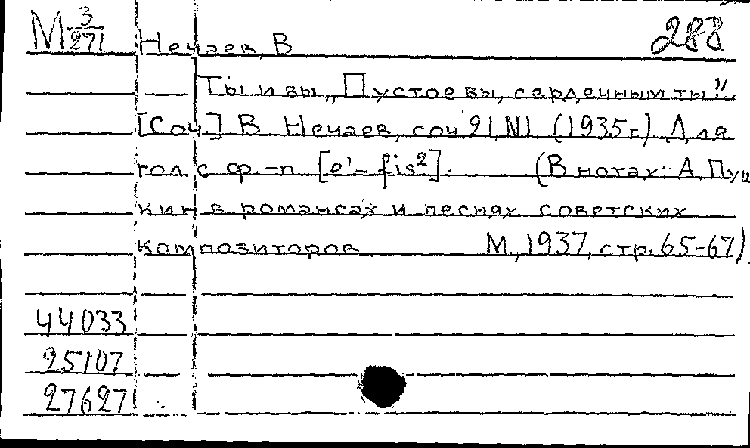 М 3/271 Нечаев, В 288
— Ты и вы „Пустое вы, сердечным ты"
[Соч] В. Нечаев, соч 21, N1 (1935 г.) Для
гол. с ф.-п [e'- fis²]. (В нотах: А. Пуш
кин в романсах и песнях советских
композиторов М., 1937, стр. 65-67)
44033
25107
27627